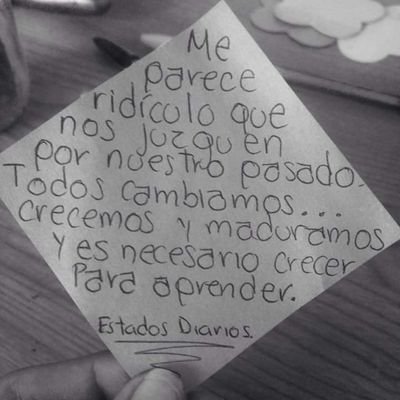 Me
parece
ridículo que
nos juzguen
por nuestro pasado.
Todos cambiamos...
crecemos y maduramos
y es necesario crecer
para aprender.
Estados Diarios.